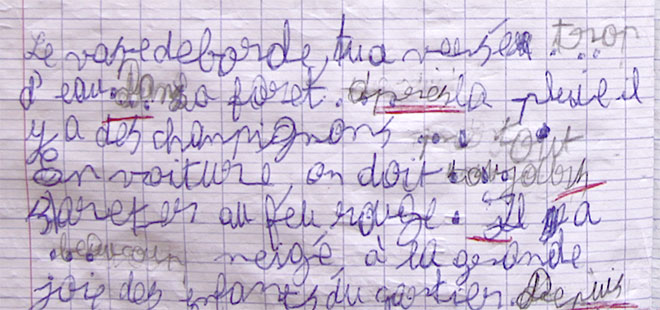 Le vase deborde, tu a versé trop
d'eau. Dans la foret. après la pluie il
y a des champignons tout
En voiture, on doit toujours
s'areter au feu rouge. Il a
beaucoup neigé à la grande
joie des enfants du cartier. Depuis